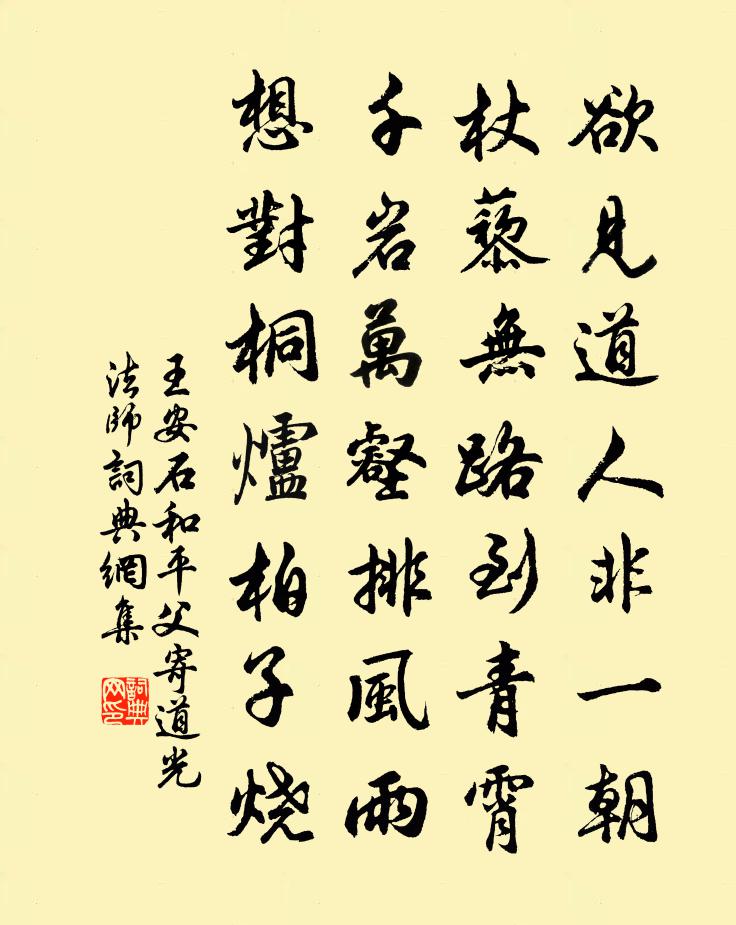 欲見道人非一朝
杖藜無路到青霄
千岩萬壑排風雨
想對桐爐柏子烧
王安石和平父寄道光
法師詞典網集
詞典
网印